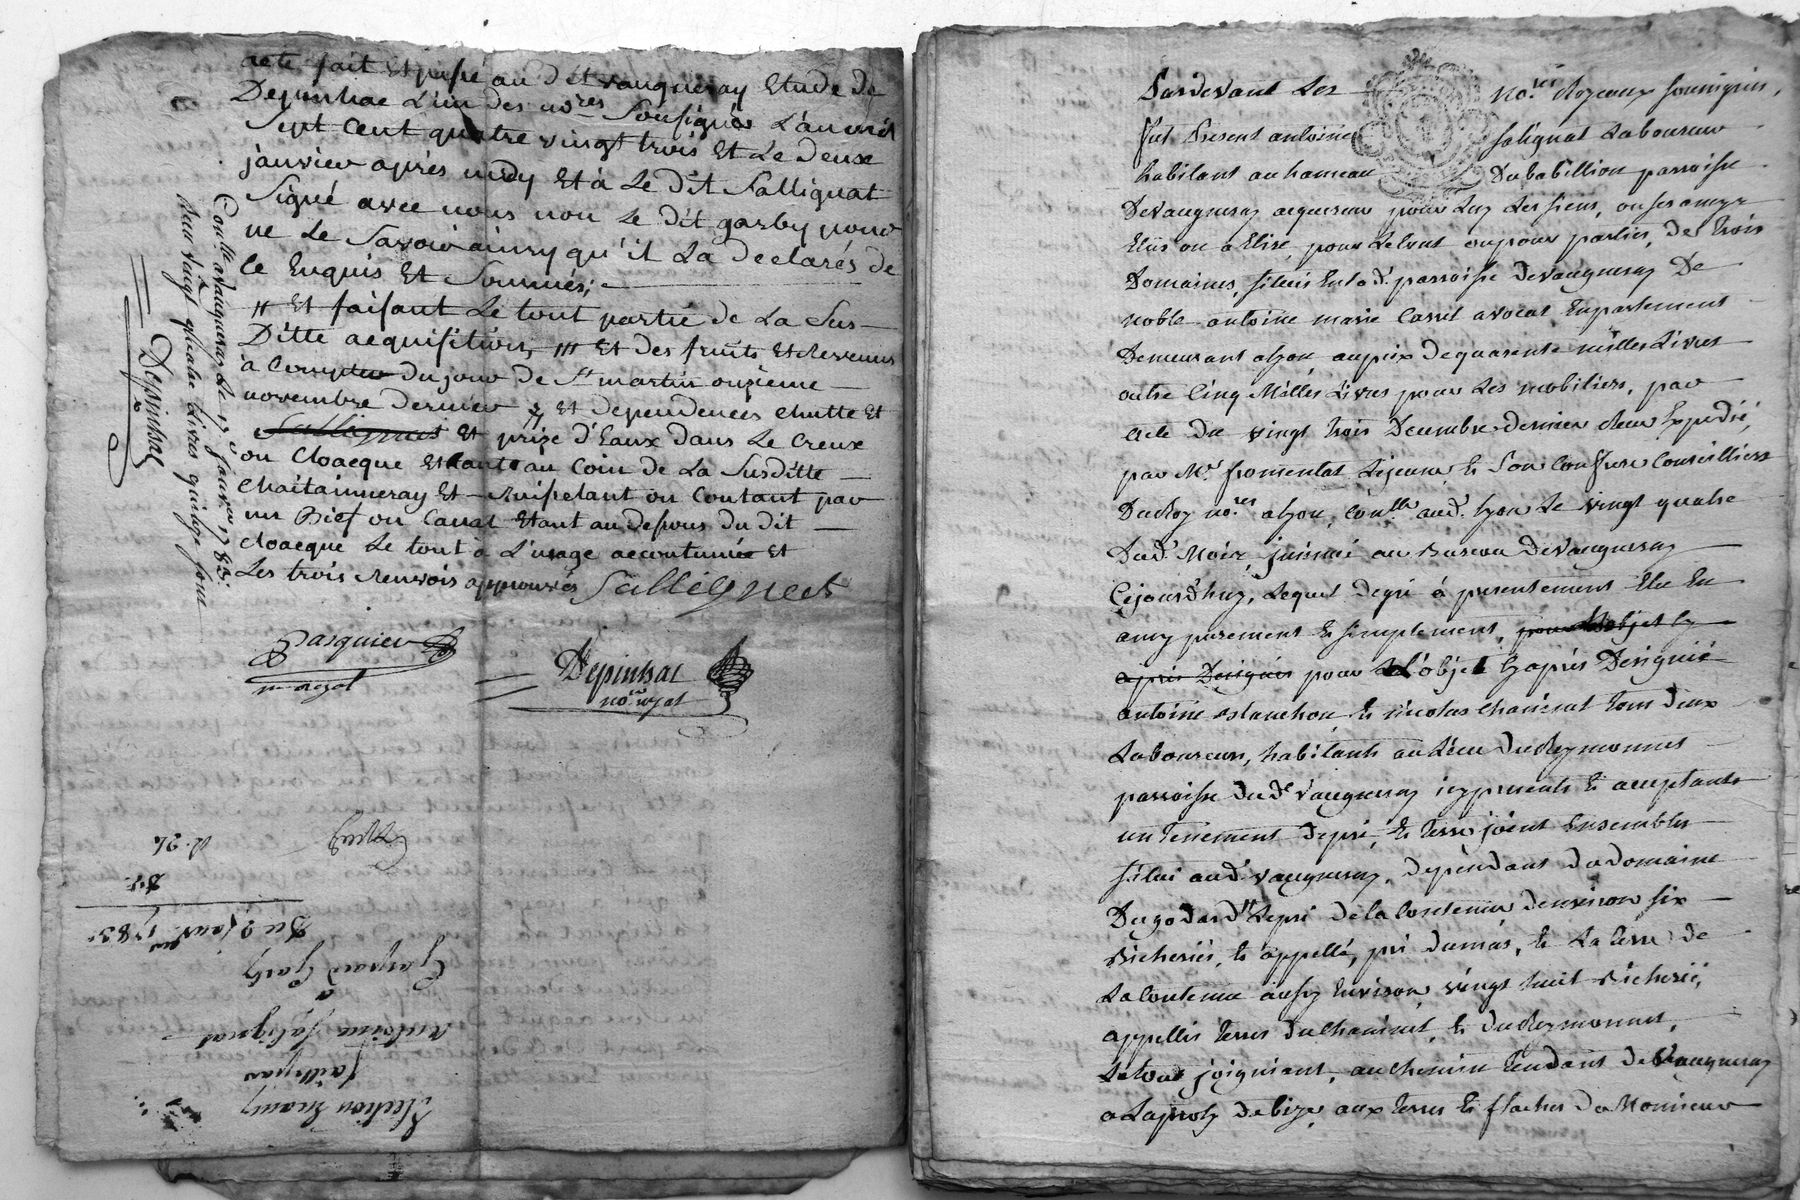 acte fait et passé au dit vaugneray Etude de
Depinhac L'un des no.res Sousignés L'an mil
Sept Cent quatre vingt trois Et Le deux
janvier après midy Et à Le dit Sallignat
Signé avec nous non Le dit garby pour
ne Le Savoir ainsy qu'il La declarés de
Ce Enquis Et Sommés;
# Et faisant Le tout partie de La Sus
Ditte acquisition, ### Et des fruits Et Revenus
à Compter du jour de St martin onzieme
novembre dernier # Et dependences chutte Et
Sallignat Et prize d'Eaux dans Le Creux
ou Cloacque Etant au Coin de La Susditte
Chataigneray Et Ruisselant ou Coulant par
un Bief ou Canal Etant au desous du dit
Cloacque Le tout à L'usage accoutumée Et
Les trois Renvois approuvés Sallignat
Pasquier
Depinhac
no.re royal
Con.llé a vaugneray Le 13 janvier 1783.
Reçu vingt quatre Livres quinze sous
Depinhac
Election En amy
Sailly par
Antoine Salignat
à
Gaspard Garby
Du 2 janv. 1783.
Pardevant Les no.res Royaux soussignés,
fut Present antoine salignat Laboureur
habitant au hameau Du babillion parroisse
DeVaugneray acquereur pour Luy Les siens, ou ses amys
Elus ou a Elire, pour Letout ou pour parties, De trois
Domaines, situés En la d. parroisse DeVaugneray De
noble antoine marie Carret avocat En parlement
Demeurant a Lyon au prix De quarente mille Livres
outre Cinq Milles Livres pour Les mobiliers, par
acte Du vingt trois Decembre dernier Reçu Expedié,
par M.e fromental Lejeune & Son Confrere Conseilliers
Du Roy no.res a Lyon, con.llé aud. Lyon Le vingt quatre
Dud. Mois, jnsinué au Bureau DeVaugneray
Cejourd'huy, Lequel De gré à presentement Elu En
amy purement & simplement, pour L'objet Cy
après Designé pour L'objet Cy après Designié
antoine Blanchon & nicolas Chanirat tous deux
Laboureurs, habitants au Lieu Du Reymonnet
parroisse Du d.t Vaugneray icy presents & acceptants
un Tenement De pré, & terre joint Ensembles
situé aud. Vaugneray, Dependant Du Domaine
Du godard Le pré De la Contenue D'environ six
Bicherées, & appellé, pré Dumas, & La terre De
La Contenue aussy Environ vingt huit Bicherée,
appellés terres Du Chanirat, & Du Reymonnet,
Letout joigniant, au Chemin Tendant De Vaugneray
a Laproty De bize, aux terres & flaches De Monsieur